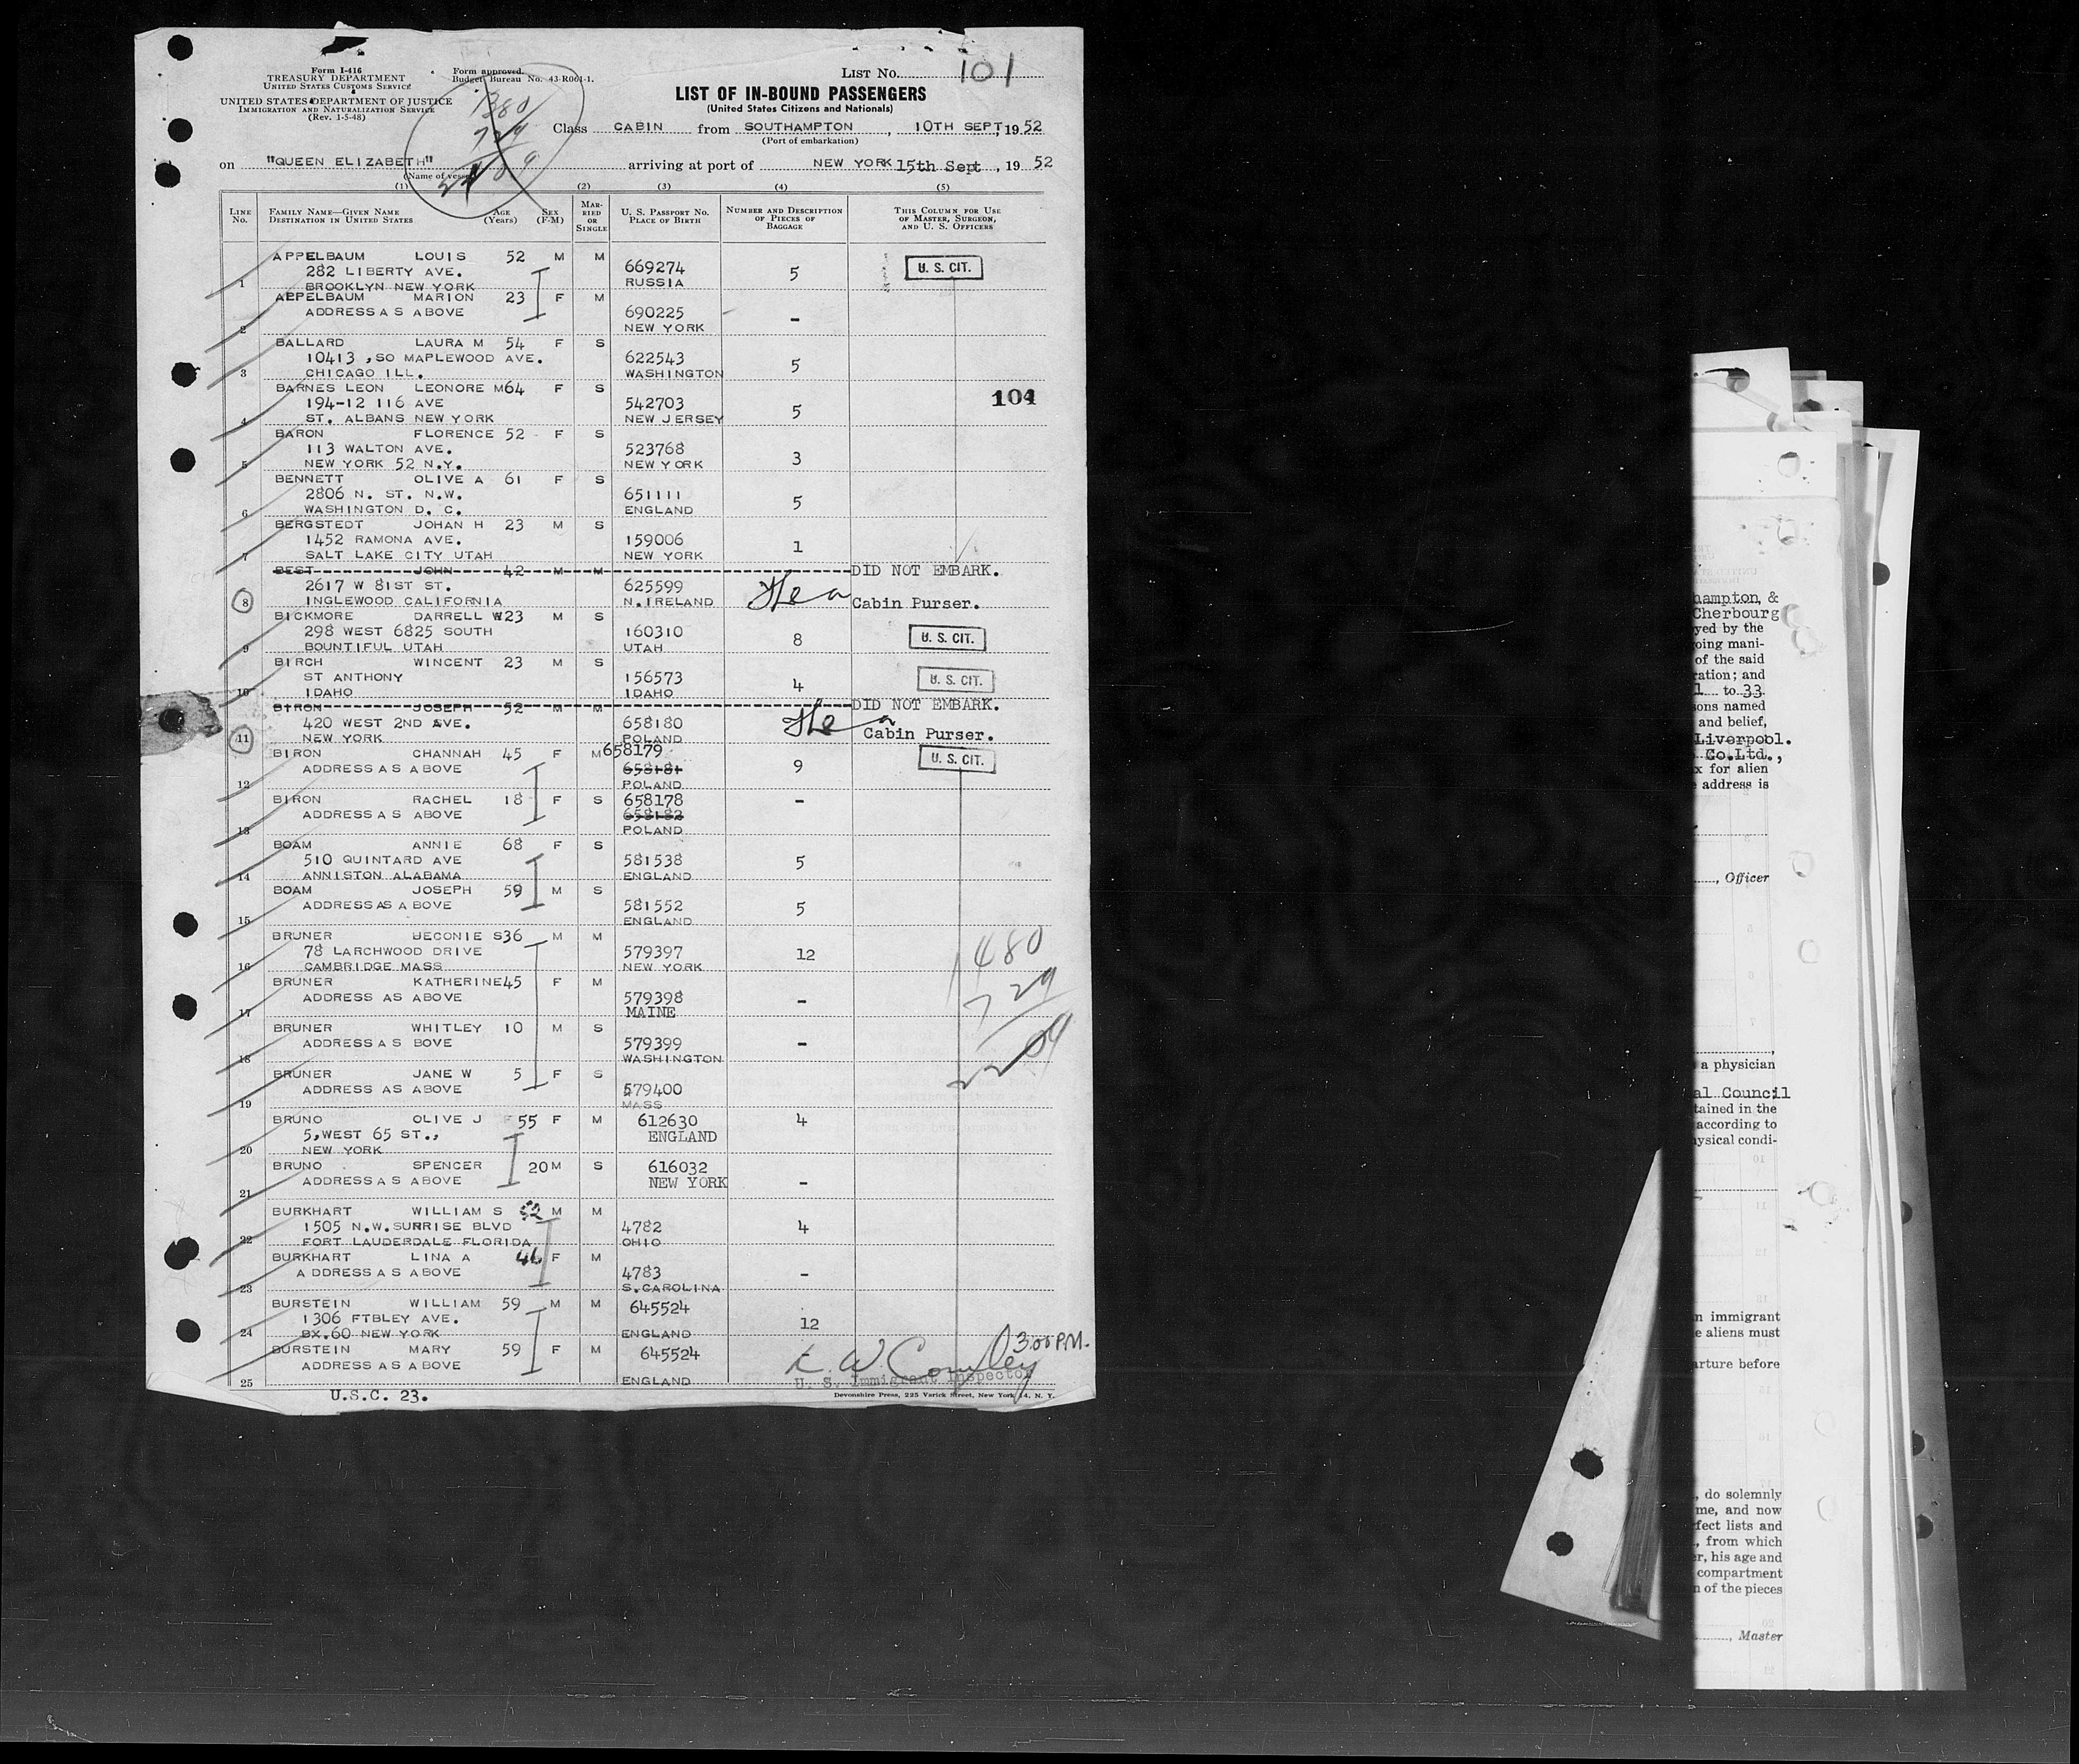 Form I-416
TREASURY DEPARTMENT
UNITED STATES CUSTOMS SERVICE
UNITED STATES DEPARTMENT OF JUSTICE
IMMIGRATION AND NATURALIZATION SERVICE
(Rev. 1-5-48)
Form approved.
Budget Bureau No. 43-R061-1.
1380
729
LIST No. 101
LIST OF IN-BOUND PASSENGERS
(United States Citizens and Nationals)
Class CABIN from SOUTHAMPTON, 10TH SEPT, 1952
(Port of embarkation)
on "QUEEN ELIZABETH" arriving at port of NEW YORK 15th Sept, 1952
(Name of vessel)
(1) (2) (3) (4) (5)
LINE No. FAMILY NAME—GIVEN NAME DESTINATION IN UNITED STATES AGE (Years) SEX (F-M) MARRIED OR SINGLE U. S. PASSPORT NO. PLACE OF BIRTH NUMBER AND DESCRIPTION OF PIECES OF BAGGAGE THIS COLUMN FOR USE OF MASTER, SURGEON, AND U. S. OFFICERS
APPELBAUM LOUIS 52 M M
282 LIBERTY AVE. 669274 5 U. S. CIT.
1 BROOKLYN NEW YORK RUSSIA
APPELBAUM MARION 23 F M
ADDRESS A S ABOVE 690225 -
2 NEW YORK
BALLARD LAURA M 54 F S
10413 ,SO MAPLEWOOD AVE. 622543 5
3 CHICAGO ILL. WASHINGTON
BARNES LEON LEONORE M64 F S
194-12 116 AVE 542703 5 104
4 ST. ALBANS NEW YORK NEW JERSEY
BARON FLORENCE 52 F S
113 WALTON AVE. 523768 3
5 NEW YORK 52 N.Y. NEW YORK
BENNETT OLIVE A 61 F S
2806 N. ST. N.W. 651111 5
6 WASHINGTON D. C. ENGLAND
BERGSTEDT JOHAN H 23 M S
1452 RAMONA AVE. 159006 1
7 SALT LAKE CITY UTAH NEW YORK
BEST JOHN 42 M M DID NOT EMBARK.
2617 W 81ST ST. 625599
8 INGLEWOOD CALIFORNIA N.IRELAND Cabin Purser.
BICKMORE DARRELL W23 M S
298 WEST 6825 SOUTH 160310 8 U. S. CIT.
9 BOUNTIFUL UTAH UTAH
BIRCH WINCENT 23 M S
ST ANTHONY 156573 4 U. S. CIT.
10 IDAHO IDAHO
BIRON JOSEPH 52 M M DID NOT EMBARK.
420 WEST 2ND AVE. 658180
11 NEW YORK POLAND Cabin Purser.
BIRON CHANNAH 45 F M 658179 U. S. CIT.
ADDRESS A S ABOVE 658181 9
12 POLAND
BIRON RACHEL 18 F S 658178 -
ADDRESS A S ABOVE 658182
13 POLAND
BOAM ANNIE 68 F S
510 QUINTARD AVE 581538 5
14 ANNISTON ALABAMA ENGLAND
BOAM JOSEPH 59 M S
ADDRESS AS A BOVE 581552 5
15 ENGLAND
BRUNER BECONIE S36 M M
78 LARCHWOOD DRIVE 579397 12
16 CAMBRIDGE MASS NEW YORK
1480
BRUNER KATHERINE45 F M
ADDRESS AS ABOVE 579398 -
17 MAINE
729
BRUNER WHITLEY 10 M S
ADDRESS A S BOVE 579399 -
18 WASHINGTON
2209
BRUNER JANE W 5 F S
ADDRESS AS ABOVE 579400
19 MASS
BRUNO OLIVE J 55 F M 612630 4
5,WEST 65 ST., ENGLAND
20 NEW YORK
BRUNO SPENCER 20M S 616032
ADDRESS A S ABOVE NEW YORK -
21
BURKHART WILLIAM S 52 M M
1505 N.W.SUNRISE BLVD 4782 4
22 FORT LAUDERDALE FLORIDA OHIO
BURKHART LINA A 46 F M
A DDRESS A S ABOVE 4783 -
23 S.CAROLINA
BURSTEIN WILLIAM 59 M M 645524
1306 FTBLEY AVE. 12
24 BX.60 NEW YORK ENGLAND
BURSTEIN MARY 59 F M 645524 3.00 P.M.
ADDRESS A S ABOVE
25 ENGLAND U. S. Immigrant Inspector
U.S.C. 23.
Devonshire Press, 225 Varick Street, New York 14, N. Y.
hampton, &
Cherbourg
yed by the
oing mani-
of the said
ration; and
1 to 33
sons named
and belief,
Liverpool.
Co.Ltd.,
x for alien
address is
, Officer
a physician
al Council
tained in the
according to
ysical condi-
n immigrant
e aliens must
arture before
, do solemnly
me, and now
rfect lists and
, from which
er, his age and
compartment
n of the pieces
, Master